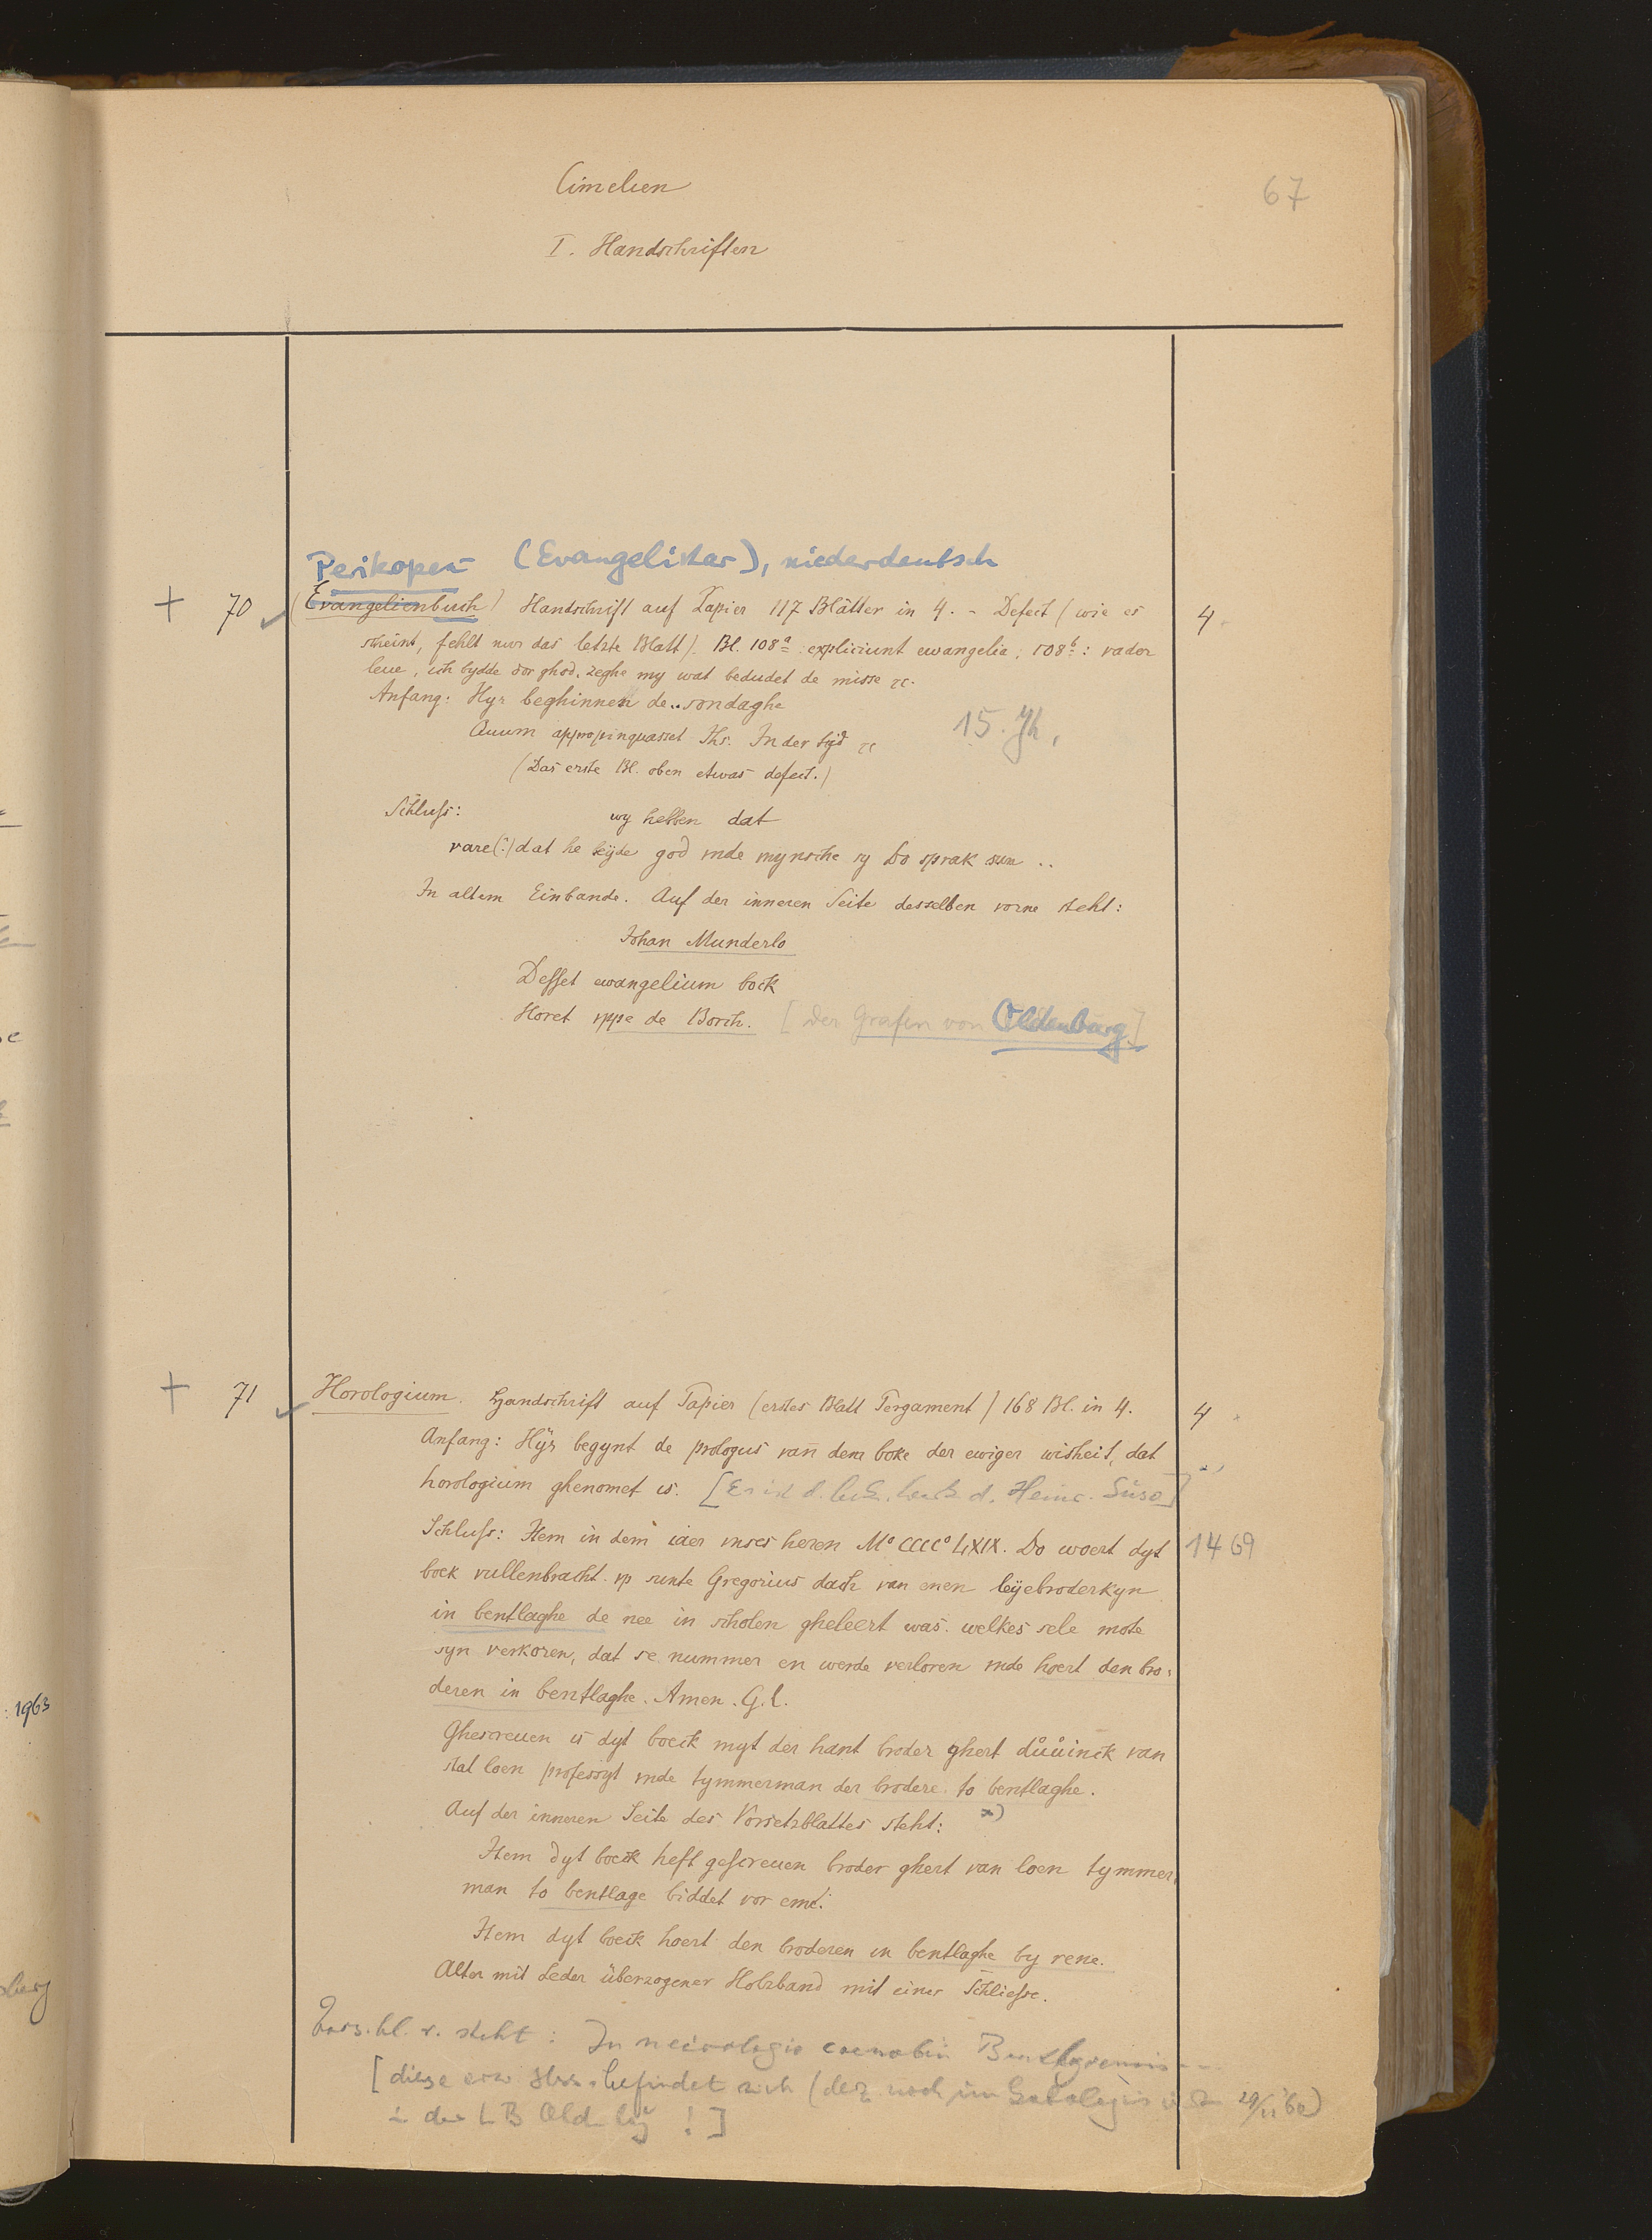 Cimelien
67
I. Handschriften
Perikopen (Evangelistar), niederdeutsch
+ 70 (Evangelienbuch) Handschrift auf Papier 117 Blätter in 4. - Defect (wie es 4.
scheint, fehlt nur das letzte Blatt). Bl. 108a: expliciunt ewangelia, 108b: vader
leue, ich bydde dor ghod, zeghe my wat bedudet de misse ꝛc.
Anfang: Hyr beghinnen de..sondaghe
Quum appropinquasset Ihs. In der tijd ꝛc
15. Jh.
(Das erste Bl. oben etwas defect.)
Schluſs: wy hebben dat
vare(?) dat he beyde god vnde mynsche sy Do sprak sun ..
In altem Einbande. Auf der inneren Seite desselben vorne steht:
Johan Munderlo
Desset ewangelium bock
Horet vppe de Borch. [der Grafen von Oldenburg]
+ 71 Horologium. Handschrift auf Papier (erstes Blatt Pergament) 168 Bl. in 4. 4.
Anfang: Hÿr begynt de prologus van dem boke der ewiger wisheit, dat
horologium ghenomet is. [Es ist d. Heinr. Suso]
Schluſs: Item in dem iaer vnses heren M° CCCC° LXIX. Do woert dyt 1469
boek vullenbracht. vp sunte Gregorius dach van enen leyebroderkyn
in bentlaghe de nee in scholen gheleert was. welkes sele mote
syn verkoren, dat se nummer en werde verloren vnde hoert den bro-
deren in bentlaghe. Amen. G. l.
Ghescreuen is dyt boeck myt der hant broder ghert důůinck van
stat loen professyt vnde tymmerman der brodere to bentlaghe.
Auf der inneren Seite des Vorsetzblattes steht: x)
Item dyt boeck heft gescreuen broder ghert van loen tymmer-
man to bentlage biddet vor eme.
Item dyt boeck hoert den broderen in bentlaghe by rene.
Alter mit Leder überzogener Holzband mit einer Schlieſse.
Vors.bl. r. steht: In necrologio coenobii Bentlagensis ---
[diese Hs. befindet sich (der noch im
in der LB Oldenbg! ]
1963